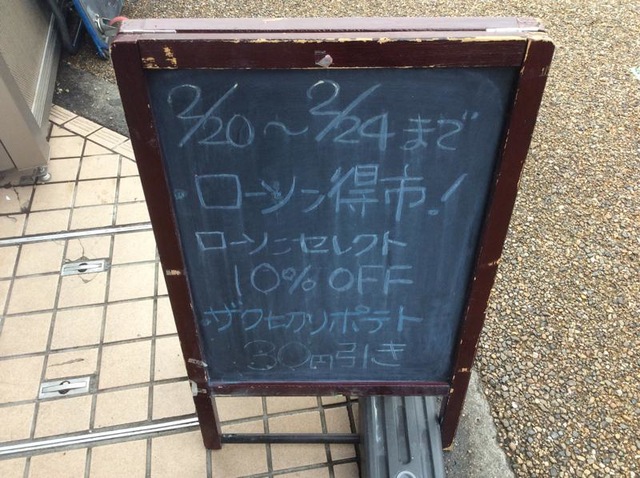 2/20〜2/24まで
ローソン得市!
ローソンセレクト
10% OFF
ポテト
30円引き